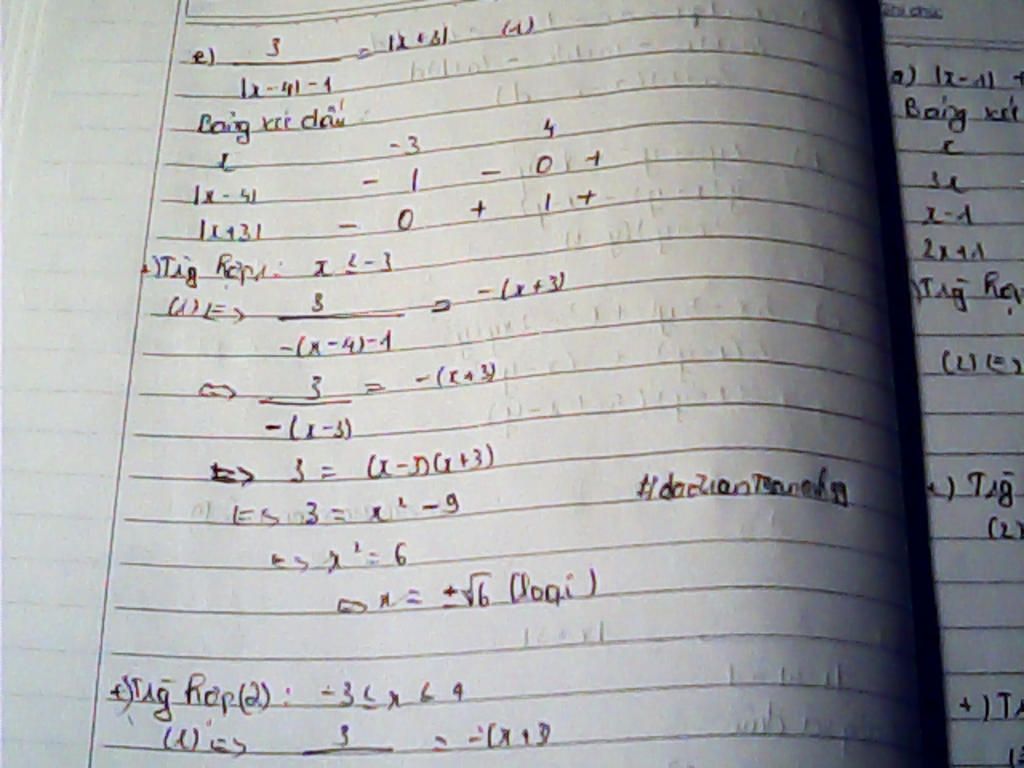 e) 3 / (|x-4|-1) = |x+3| (1)
Bảng xét dấu:
x -3 4
|x-4| - | - 0 +
|x+3| - 0 + | +
+) Trg hợp 1: x ≤ -3
(1) <=> 3 / (-(x-4)-1) = -(x+3)
<=> 3 / (-(x-3)) = -(x+3)
<=> 3 = (x-3)(x+3)
<=> 3 = x² - 9
<=> x² = 6
<=> x = ±√6 (loại)
+) Trg hợp (2): -3 ≤ x ≤ 4
(1) <=> 3 = -(x+3)
a) |x-1| +
Bảng xét
x
3x
x-1
2x+1
Trg hợp
(2) <=>
+) Trg
(2)
+) Tr